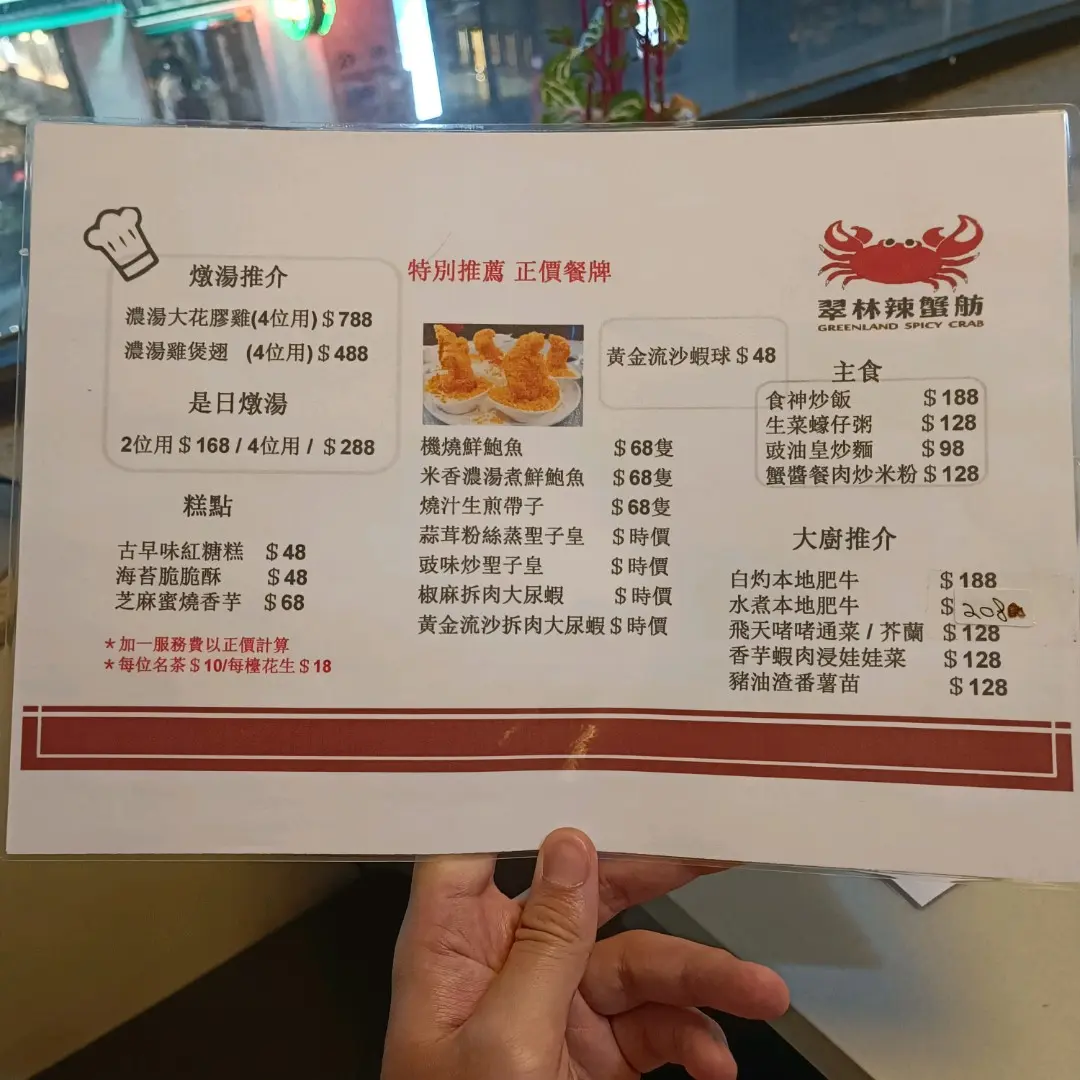 燉湯推介
濃湯大花膠雞(4位用)$788
濃湯雞煲翅 (4位用)$488
是日燉湯
2位用$168/4位用/ $288
糕點
古早味紅糖糕 $48
海苔脆脆酥 $48
芝麻蜜燒香芋 $68
*加一服務費以正價計算
*每位名茶$10/每檯花生$18
特別推薦 正價餐牌
黃金流沙蝦球$48
機燒鮮鮑魚 $68隻
米香濃湯煮鮮鮑魚 $68隻
燒汁生煎帶子 $68隻
蒜茸粉絲蒸聖子皇 $時價
豉味炒聖子皇 $時價
椒麻拆肉大尿蝦 $時價
黃金流沙拆肉大尿蝦$時價
翠林辣蟹舫
GREENLAND SPICY CRAB
主食
食神炒飯 $188
生菜蠔仔粥 $128
豉油皇炒麵 $98
蟹醬餐肉炒米粉$128
大廚推介
白灼本地肥牛 $188
水煮本地肥牛 $208
飛天啫啫通菜/芥蘭 $128
香芋蝦肉浸娃娃菜 $128
豬油渣番薯苗 $128